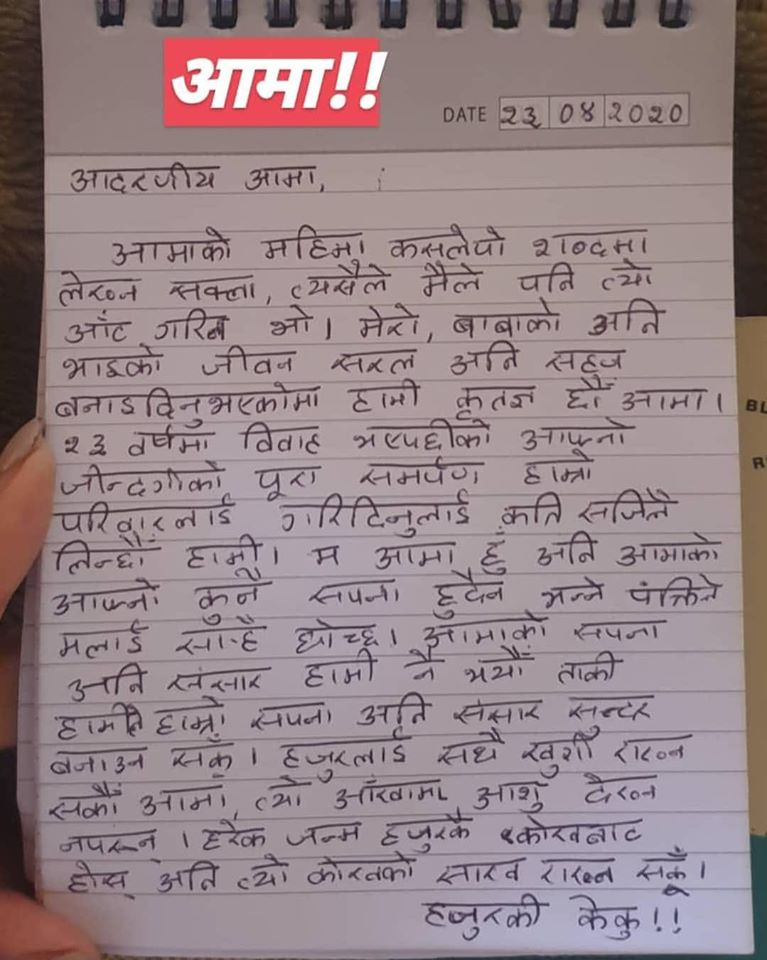 आमा!!
DATE २३ ०४ २०२०
आदरणीय आमा,
आमाको महिमा कसलेपो शब्दमा
लेख्न सक्ला, त्यसैले मैले पनि त्यो
आँट गरिन भो। मेरो, बाबाको अनि
भाइको जीवन सरल अनि सहज
बनाइदिनुभएकोमा हामी कृतज्ञ छौं आमा।
२३ वर्षमा विवाह भएपछीको आफ्नो
जीन्दगीको पूरा समर्पण हाम्रो
परिवारलाई गरिदिनुलाई कति सजिलै
लिन्छौं हामी। म आमा हुँ अनि आमाको
आफ्नो कुनै सपना हुदैन भन्ने पंक्तिले
मलाई साऱ्है घोच्छ। आमाको सपना
अनि संसार हामी नै भयौं ताकी
हामीले हाम्रो सपना अनि संसार सुन्दर
बनाउन सकूँ। हजुरलाई सधै खुशी राख्न
सकौं आमा, त्यो आँखामा आशु देख्न
नपरून्। हरेक जन्म हजुरकै कोखबाट
होस् अनि त्यो कोखको साख राख्न सकूँ।
हजुरकी केकु!!
BL
R